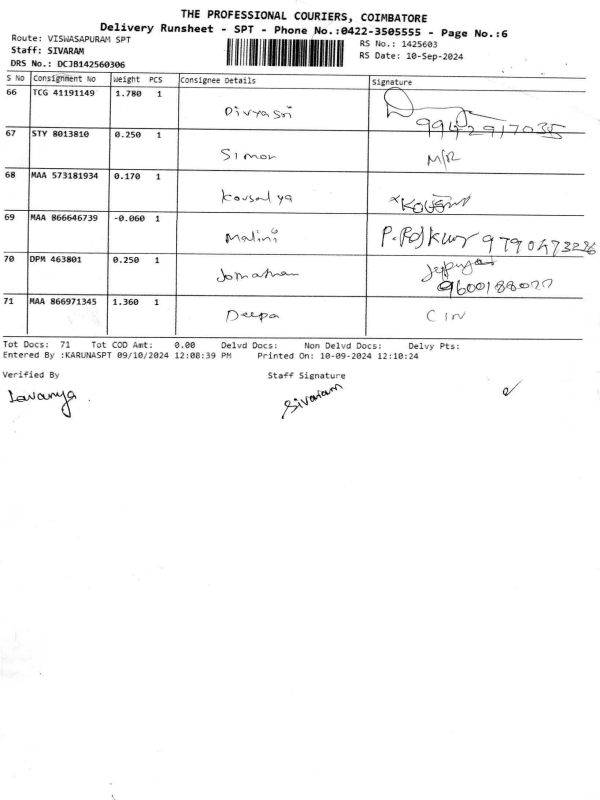 THE PROFESSIONAL COURIERS, COIMBATORE
Delivery Runsheet - SPT - Phone No.:0422-3505555 - Page No.:6
Route: VISWASAPURAM SPT
RS No.: 1425603
Staff: SIVARAM
RS Date: 10-Sep-2024
DRS No.: DCJB142560306
S No Consignment No Weight PCS Consignee Details Signature
66 TCG 41191149 1.780 1
Divyasri
67 STY 8013810 0.250 1
Simon M/R
68 MAA 573181934 0.170 1
Kousalya
69 MAA 866646739 -0.060 1
Malini 9790473226
70 DPM 463801 0.250 1
Jomathan
9600188077
71 MAA 866971345 1.360 1
Deepa
Tot Docs: 71 Tot COD Amt: 0.00 Delvd Docs: Non Delvd Docs: Delvy Pts:
Entered By :KARUNASPT 09/10/2024 12:08:39 PM Printed On: 10-09-2024 12:10:24
Verified By Staff Signature
Lavanya
Sivaram